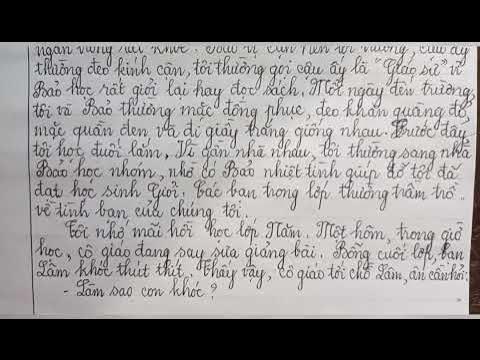 ngắn trông rất khoẻ. Bảo bị cận nên tới trường, cậu ấy
thường đeo kính cận, tôi thường gọi cậu ấy là "Giáo sư" vì
Bảo học rất giỏi lại hay đọc sách. Mỗi ngày đến trường,
tôi và Bảo thường mặc đồng phục, đeo khăn quàng đỏ,
mặc quần đen và đi giầy trắng giống nhau. Trước đây
tôi học đuối lắm. Vì gần nhà nhau, tôi thường sang nhà
Bảo học nhóm, nhờ có Bảo nhiệt tình giúp đỡ tôi đã
đạt học sinh Giỏi. Các bạn trong lớp thường trầm trồ
về tình bạn của chúng tôi.
Tôi nhớ mãi hồi học lớp Năm. Một hôm, trong giờ
học, cô giáo đang say sưa giảng bài. Bỗng cuối lớp, bạn
Lâm khóc thút thít. Thấy vậy, cô giáo tới chỗ Lâm, ân cần hỏi:
- Làm sao con khóc?